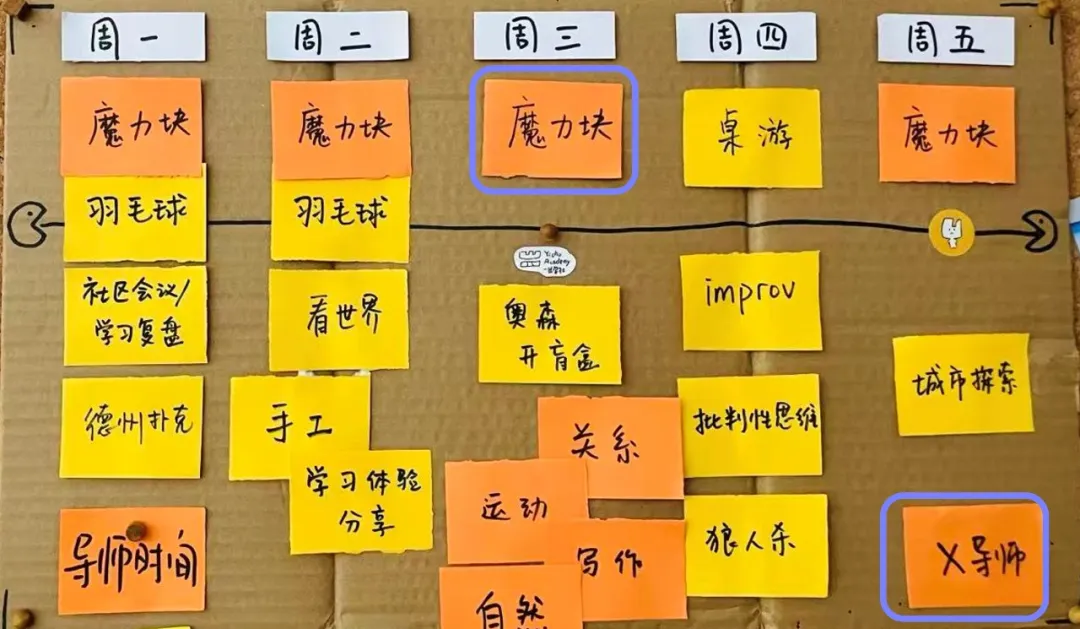 周一
周二
周三
周四
周五
魔力块
魔力块
魔力块
桌游
魔力块
羽毛球
羽毛球
Academy
社区会议/
学习复盘
看世界
奥森
开盲盒
improv
城市探索
德州扑克
手工
学习体验
分享
关系
运动
写作
自然
批判性思维
狼人杀
导师时间
X导师